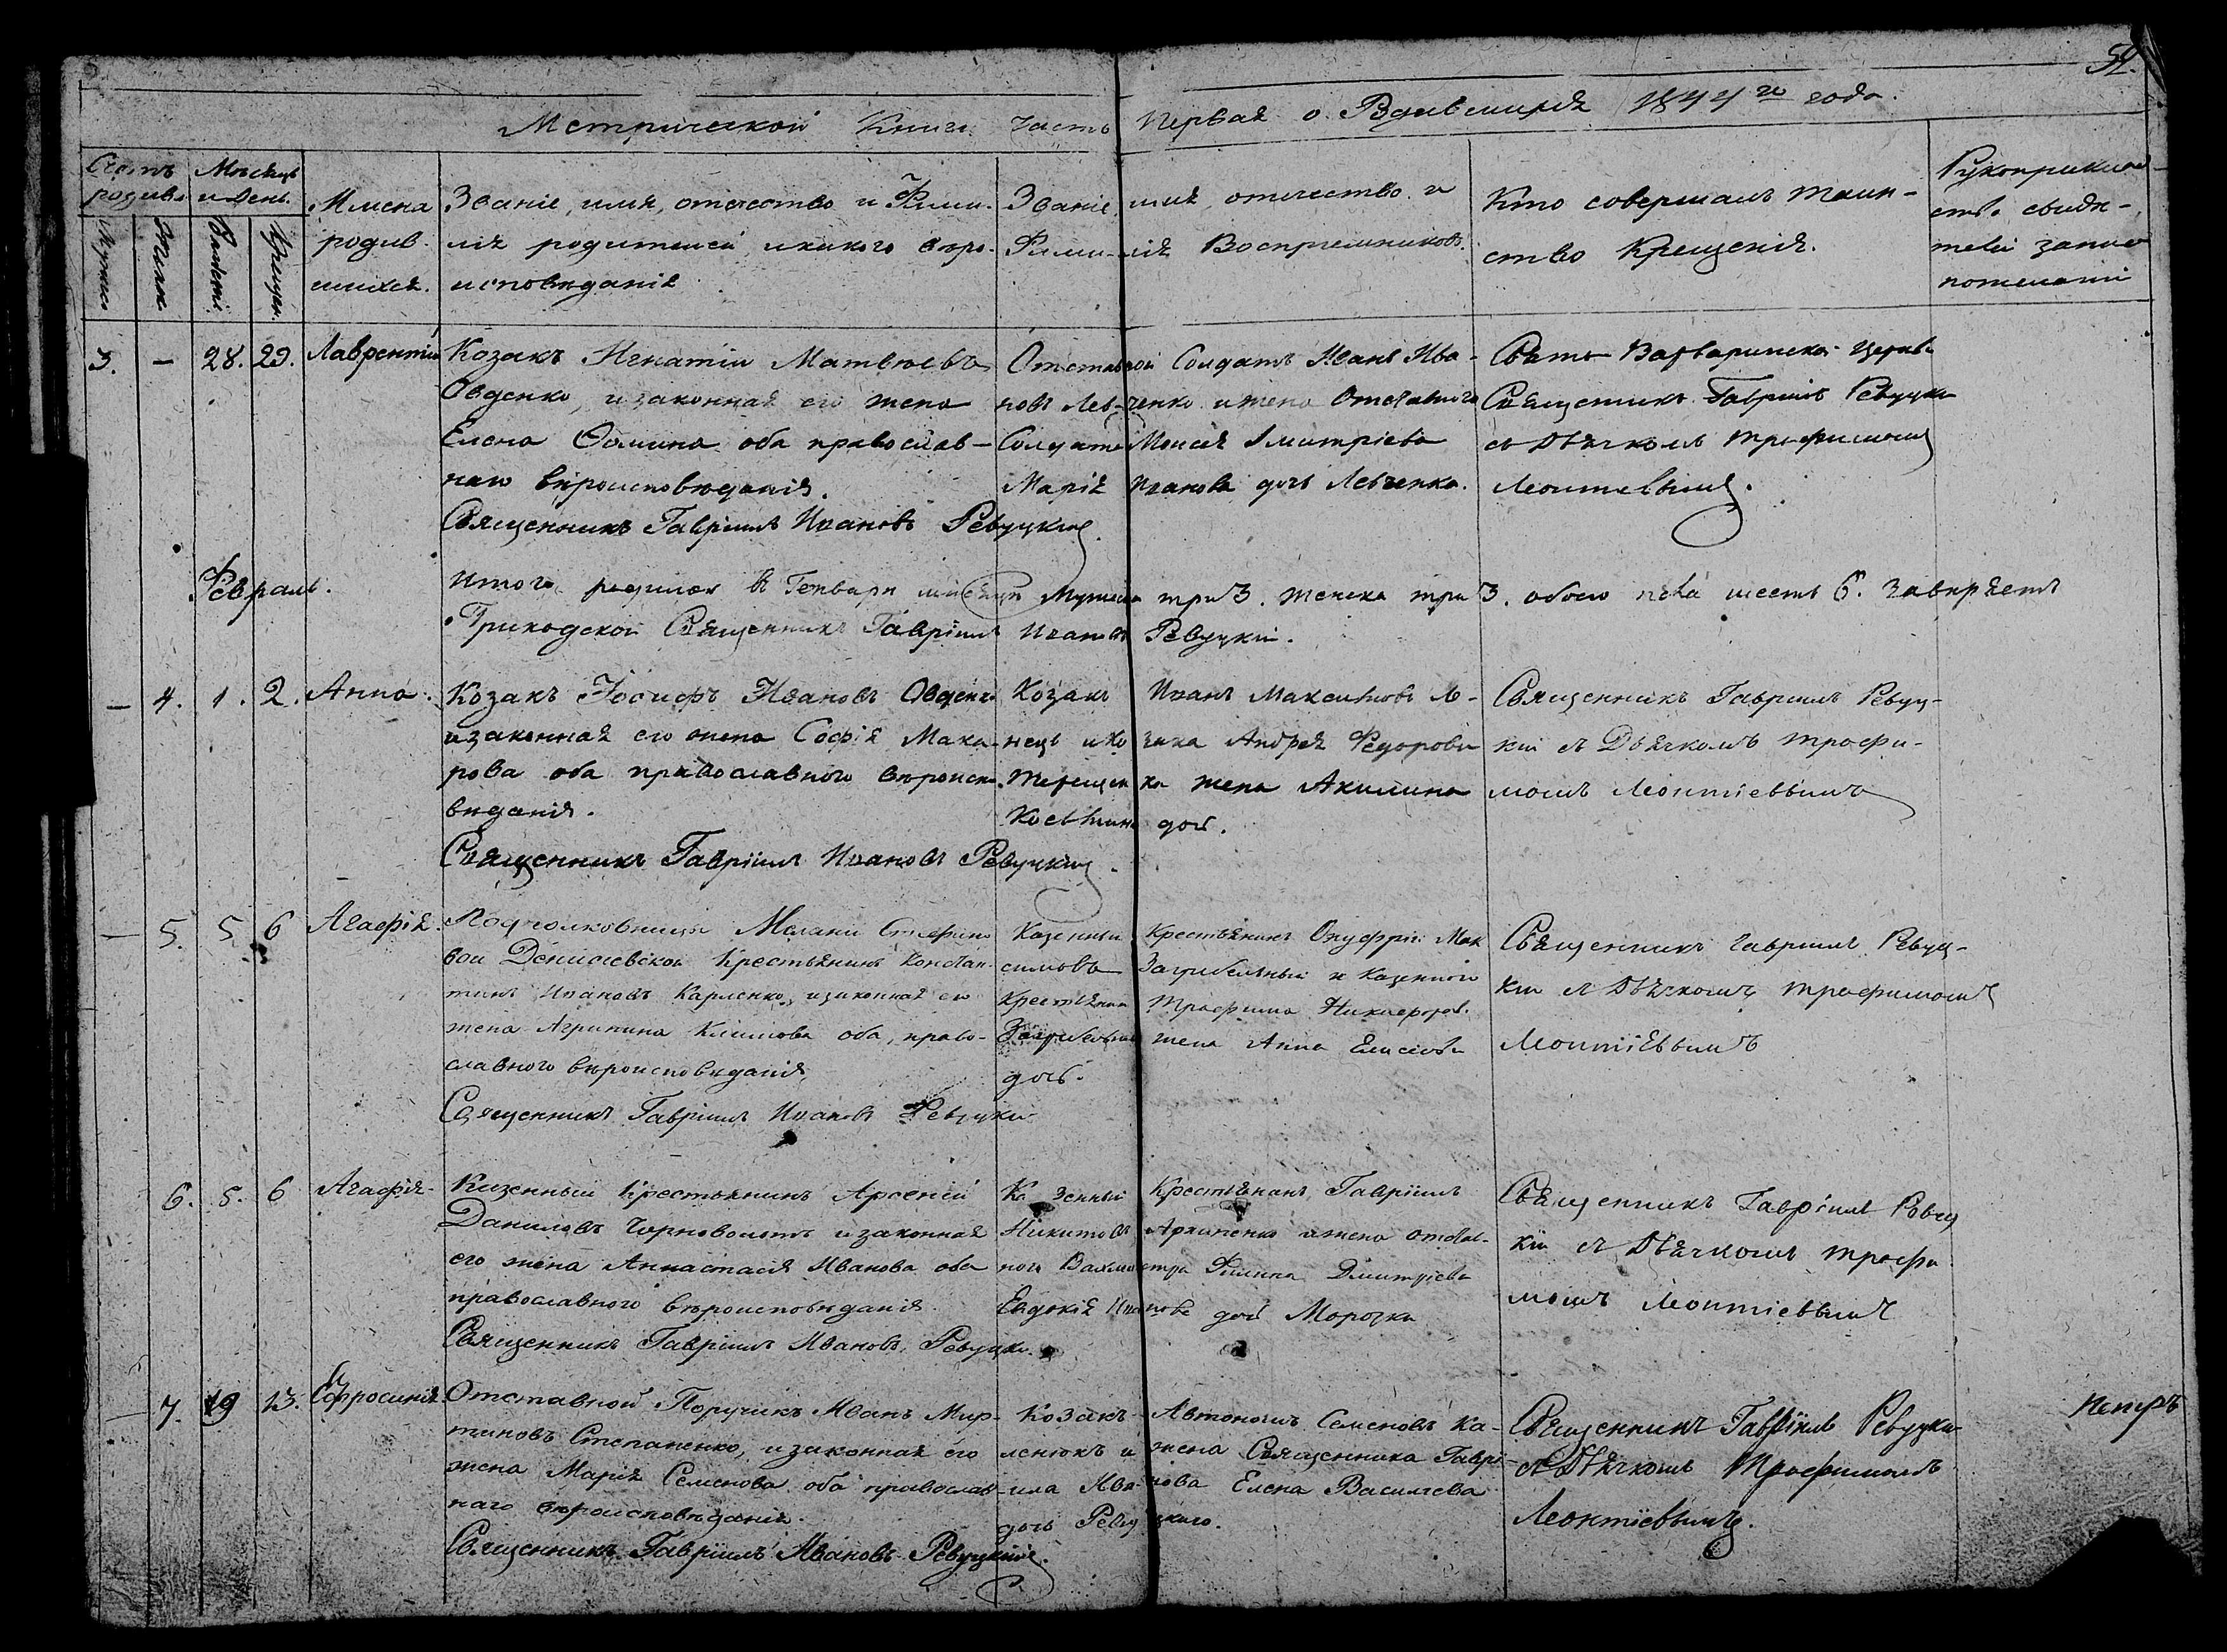 52.
Метрической Книги часть Первая о Родившихся 1844го года.
Счетъ родивш.
Мѣсяцъ и день.
Имена родив-
шихся.
Званіе, имя, отечество и Фами-
лія родителей и какого вѣро-
исповѣданія
Званіе, имя, отечество и
Фамилія Воспріемниковъ.
Кто совершалъ таин-
ство Крещенія.
Рукоприклад
ство свидѣ-
телей записи
по желанію
Мужеска
Женска
Рожденія
Крещен.
3. — 28. 29. Лаврентій
Козакъ Игнатій Матвѣевъ
Овденко, и законная его жена
Елена Фомина оба православ-
наго вѣроисповѣданія.
Священникъ Гавріилъ Ивановъ Ревуцкій.
Отставной Солдатъ Иванъ Ива-
новъ Левченко и жена Отставнаго
Солдата Моисея Дмитріева
Марія Иванова дочь Левченка.
Свято Варваринской Церкви
Священникъ Гавріилъ Ревуцкій
съ Дьячкомъ Трофимомъ
Леонтьевымъ.
Февраль.
Итого родилось въ Генварѣ мѣсяцѣ Мужеска три 3. женска три 3. обоего пола шесть 6. Завѣряетъ
Приходской Священникъ Гавріилъ Ивановъ Ревуцкій.
— 4. 1. 2. Анна.
Козакъ Іосифъ Ивановъ Овденко
и законная его жена Софія Мака-
рова оба православного вѣроиспо-
вѣданія.
Священникъ Гавріилъ Ивановъ Ревуцкій.
Козакъ Иванъ Максимовъ Ло-
нецъ и Козака Андрея Федорова
Терещенка жена Акилина
Косьмина дочь.
Священникъ Гавріилъ Ревуц-
кій съ Дьячкомъ Трофи-
момъ Леонтіевымъ
— 5. 5. 6 Агафія.
Подполковницы Меланіи Стефано
вой Крестьянинъ Констан-
тинъ Ивановъ Карпенко, и законная его
жена Агрипина Климова оба право-
славного вѣроисповѣданія,
Священникъ Гавріилъ Ивановъ Ревуцкій
Казенный Крестьянинъ Онуфрій Мак
симовъ Загребельный и Казенного
Крестьянина Трофима Никифоров.
Загребельнаго жена Анна Елисеева
дочь.
Священникъ Гавріилъ Ревуц-
кій съ Дьячкомъ Трофимомъ
Леонтіевымъ
6. 5. 6 Агафія-
Казенный Крестьянинъ Арсеній
Даниловъ Чорноволотъ и законная
его жена Аннастасія Иванова оба
православного вѣроисповѣданія.
Священникъ Гавріилъ Ивановъ Ревуцкій.
Казенный Крестьянинъ Гавріилъ
Никитовъ Архипенко и жена отстав-
ного Вахмистра Филипа Дмитріева
Евдокія Иванова дочь Морозка
Священникъ Гавріилъ Ревуц
кій съ Дьячкомъ Трофи
момъ Леонтіевымъ
— 7. 19 23. Ефросинія.
Отставной Поручикъ Иванъ Мар-
тиновъ Степаненко, и законная его
жена Марія Семенова оба православ-
наго вѣроисповѣданія.
Священникъ Гавріилъ Ивановъ Ревуцкій.
Козакъ Автономъ Семеновъ Ка-
ленюкъ и жена Священника Гаврі-
ила Иванова Елена Васильева
дочь Ревуцкаго.
Священникъ Гавріилъ Ревуцкій
съ Дьячкомъ Трофимомъ
Леонтіевымъ.